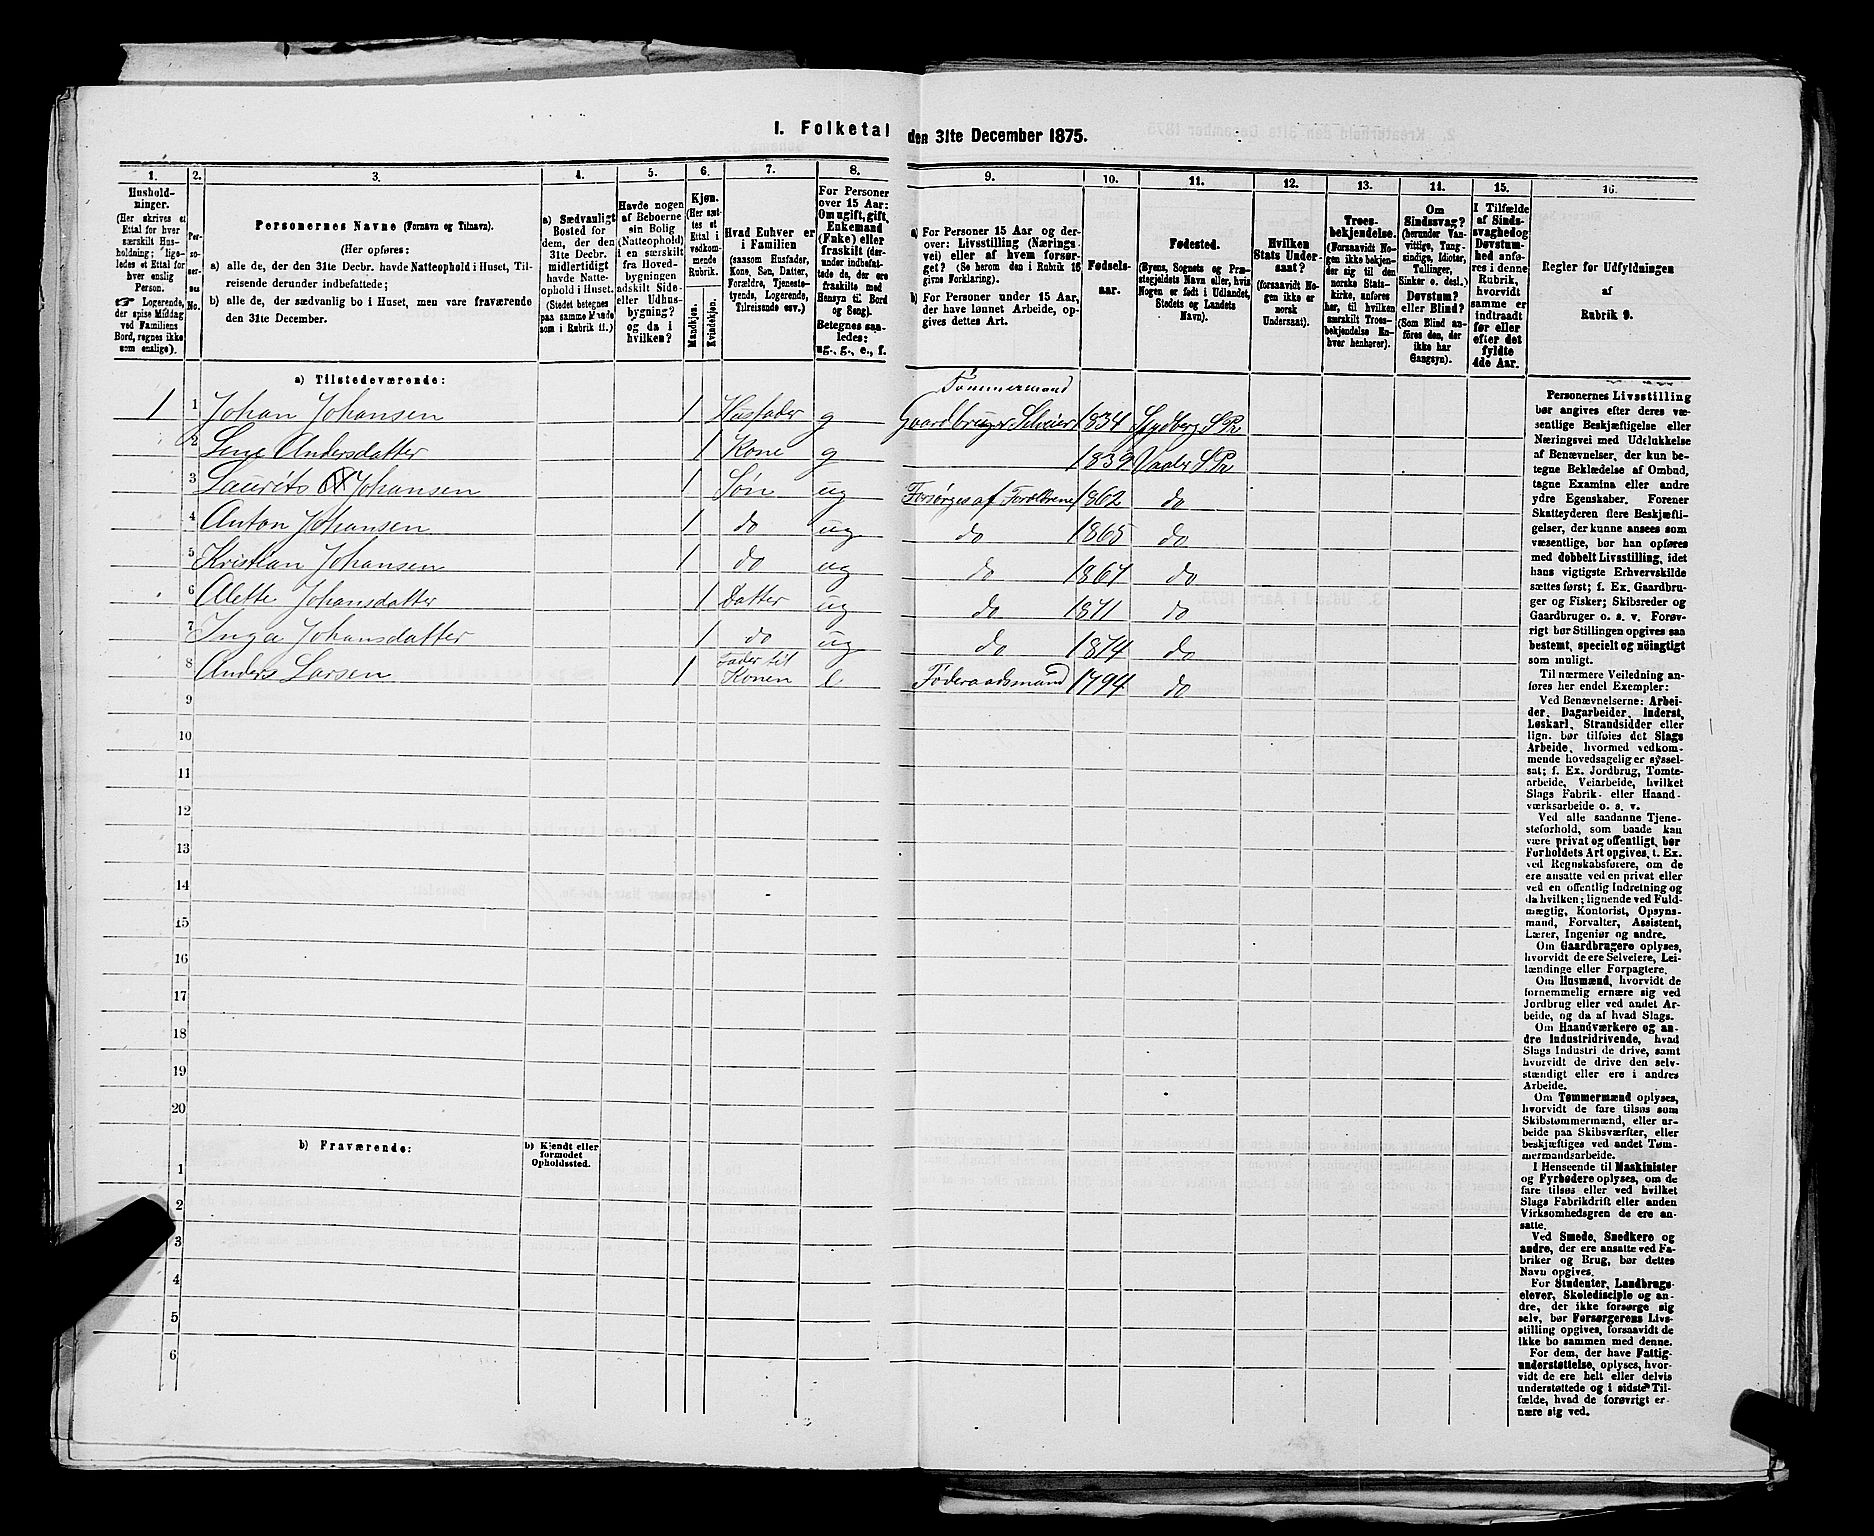 I. Folketal den 31te December 1875.
1. 2. 3. 4. 5. 6. 7. 8. 9. 10. 11. 12. 13. 14. 15. 16.
Hushold-
ninger.
(Her skrives et
Ettal for hver
særskilt Hus-
holdning; lige-
ledes et Ettal for
hver enslig
Person.
☞ Logerende,
der spise Middag
ved Familiens
Bord, regnes ikke
som enslige).
Per-
so-
ner-
nes
No.
Personernes Navne (Fornavn og Tilnavn).
(Her opføres:
a) alle de, der den 31te Decbr. havde Natteophold i Huset, Til-
reisende derunder indbefattede;
b) alle de, der sædvanlig bo i Huset, men vare fraværende
den 31te December.
a) Sædvanligt
Bosted for
dem, der den
31te Decbr.
midlertidigt
havde Natte-
ophold i Huset.
(Stedet betegnes
paa samme Maade
som i Rubrik 11.)
Havde nogen
af Beboerne
sin Bolig
(Natteophold)
i en særskilt
fra Hoved-
bygningen
adskilt Side-
eller Udhus-
bygning?
og da i
hvilken?
Kjøn.
(Her sæt-
tes et
Ettal i
vedkom-
mende
Rubrik.
Mandkjøn.
Kvindekjøn.
Hvad Enhver er
i Familien
(saasom Husfader,
Kone, Søn, Datter,
Forældre, Tjeneste-
tyende, Logerende,
Tilreisende osv.)
For Personer
over 15 Aar:
Om ugift, gift,
Enkemand
(Enke) eller
fraskilt (der-
under indbefat-
tede de, der ere
fraskilte med
Hensyn til Bord
og Seng).
Betegnes saa-
ledes:
ug., g., e., f.
a) For Personer 15 Aar og der-
over: Livsstilling (Nærings-
vei) eller af hvem forsør-
get? (Se herom den i Rubrik 16
givne Forklaring).
b) For Personer under 15 Aar,
der have lønnet Arbeide, op-
gives dettes Art.
Fødsels-
aar.
Fødested.
(Byens, Sognets og Præ-
stegjeldets Navn eller, hvis
Nogen er født i Udlandet,
Stedets og Landets
Navn).
Hvilken
Stats Under-
saat?
(forsaavidt No-
gen ikke er
norsk
Undersaat).
Troes-
bekjendelse.
(Forsaavidt No-
gen ikke bekjen-
der sig til den
norske Stats-
kirke, anføres
her, til hvilken
særskilt Troes-
bekjendelse En-
hver henhører).
Om
Sindssvag?
(herunder Van-
vittige, Tung-
sindige, Idioter,
Tullinger,
Sinker o. desl.)
Døvstum?
eller Blind?
(Som Blind an-
føres den, der
ikke har
Gangsyn).
I Tilfælde
af Sinds-
svaghed og
Døvstum-
hed anfø-
res i denne
Rubrik,
hvorvidt
samme er
indtraadt
før eller
efter det
fyldte
4de Aar.
Regler for Udfyldningen
af
Rubrik 9.
a) Tilstedeværende:
Tømmermand
1 1 Johan Johansen 1 Husfader g Gaardbruger Selveier 1834 Spydberg S Pr
2 Lene Andersdatter 1 Kone g 1839 Vaaler S Pr
3 Laurits Johansen 1 Søn ug Forsørges af Forældrene 1862 do
4 Anton Johansen 1 do ug do 1865 do
5 Kristian Johansen 1 do ug do 1867 do
6 Alette Johansdatter 1 Datter ug do 1871 do
7 Inga Johansdatter 1 do ug do 1874 do
8 Anders Larsen 1 Fader til Konen e Føderaadsmand 1794 do
9
10
11
12
13
14
15
16
17
18
19
20
b) Fraværende:
b) Kjendt eller
formodet
Opholdssted.
1
2
3
4
5
6
Personernes Livsstilling
bør angives efter deres væ-
sentlige Beskjæftigelse eller
Næringsvei med Udelukkelse
af Benævnelser, der kun be-
tegne Beklædelse af Ombud,
tagne Examina eller andre
ydre Egenskaber. Forener
Skatteyderen flere Beskjæfti-
gelser, der kunne ansees som
væsentlige, bør han opføres
med dobbelt Livsstilling, idet
hans vigtigste Erhvervskilde
sættes først; f. Ex. Gaardbru-
ger og Fisker; Skibsreder og
Gaardbruger o. s. v. Forøv-
rigt bør Stillingen opgives saa
bestemt, specielt og nöingtigt
som muligt.
Til nærmere Veiledning an-
føres her endel Exempler:
Ved Benævnelserne: Arbei-
der, Dagarbeider, Inderst,
Løskarl, Strandsidder eller
lign. bør tilføies det Slags
Arbeide, hvormed vedkom-
mende hovedsagelig er syssel-
sat; f. Ex. Jordbrug, Tomte-
arbeide, Veiarbeide, hvilket
Slags Fabrik- eller Haand-
værksarbeide o. s. v.
Ved alle saadanne Tjene-
steforhold, som baade kan
være privat og offentligt, bør
Forholdets Art opgives, t. Ex.
ved Regnskabsførere, om de
ere ansatte ved en privat eller
ved en offentlig Indretning og
da hvilken; lignende ved Fuld-
mægtig, Kontorist, Opsyns-
mand, Forvalter, Assistent,
Lærer, Ingeniør og andre.
Om Gaardbrugere oplyses,
hvorvidt de ere Selveiere, Lei-
lændinge eller Forpagtere.
Om Husmænd, hvorvidt de
fornemmelig ernære sig ved
Jordbrug eller ved andet Ar-
beide, og da af hvad Slags.
Om Haandværkere og an-
dre Industridrivende, hvad
Slags Industri de drive, samt
hvorvidt de drive den selv-
stændigt eller ere i andres
Arbeide.
Om Tømmermænd oplyses,
hvorvidt de fare tilsøs som
Skibstømmermænd, eller ar-
beide paa Skibsværfter, eller
beskjæftiges ved andet Tøm-
mermandsarbeide.
I Henseende til Maskinister
og Fyrbødere oplyses, om de
fare tilsøs eller ved hvilket
Slags Fabrikdrift eller anden
Virksomhedsgren de ere an-
satte.
Ved Smede, Snedkere og
andre, der ere ansatte ved Fa-
briker og Brug, bør dettes
Navn opgives.
For Studenter, Landbrugs-
elever, Skoledisciple og an-
dre, der ikke forsørge sig
selv, bør Forsørgerens Livs-
stilling opgives, forsaavidt de
ikke bo sammen med denne.
For dem, der have Fattig-
understøttelse, oplyses, hvor-
vidt de ere helt eller delvis
understøttede og i sidste Til-
fælde, hvad de forøvrigt er-
nære sig ved.